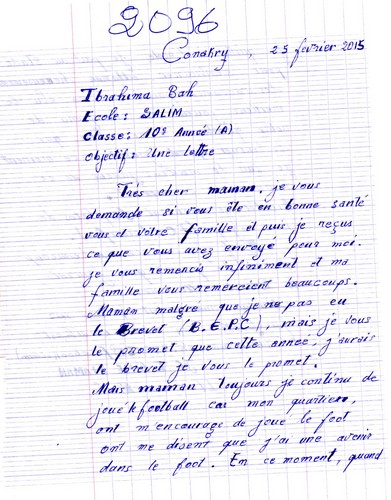 2096
Conakry, 25 fevrier 2015
Ibrahima Bah
Ecole: SALIM
Classe: 10e Année (A)
Objectif: Une lettre
Très cher maman, je vous
demande si vous éte en bonne santé
vous et votre famille et puis je reçus
ce que vous avez envoyé pour moi.
je vous remencis infiniment et ma
famille vous remercient beaucoups.
Maman malgre que je ne pas eu
le Brevet (B.E.P.C), mais je vous
le promet que cette année, j'aurais
le brevet je vous le promet.
Mais maman toujours je continu de
joué le football car mon quartier,
ont m'encourage de joue le foot
ont me disent que j'ai une avenir
dans le foot. En ce moment, quand